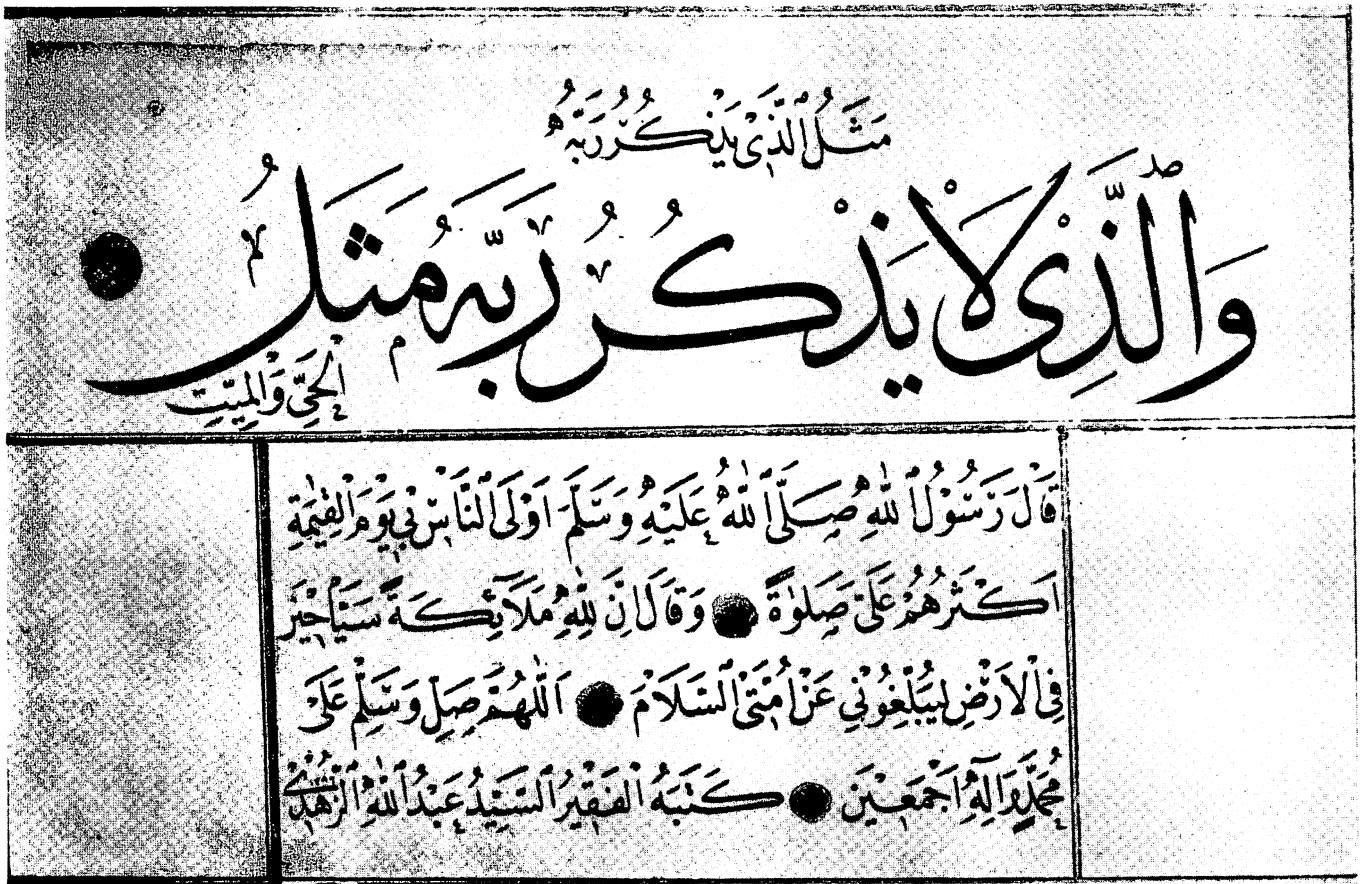 مَثَلُ الَّذِى يَذْكُرُ رَبَّهُ
وَالَّذِى لَا يَذْكُرُ رَبَّهُ مَثَلُ
الْحَىِّ وَالْمَيِّتِ
قَالَ رَسُولُ اللهِ صَلَّى اللهُ عَلَيْهِ وَسَلَّمَ اَوْلَى النَّاسِ بِى يَوْمَ الْقِيٰمَةِ
اَكْثَرُهُمْ عَلَىَّ صَلٰوةً وَقَالَ اِنَّ لِلّٰهِ مَلَائِكَةً سَيَّاحِينَ
فِى الْاَرْضِ يُبَلِّغُونِى عَنْ اُمَّتِى السَّلَامَ اَللّٰهُمَّ صَلِّ وَسَلِّمْ عَلَى
مُحَمَّدٍ وَاٰلِهِ اَجْمَعِينَ كَتَبَهُ الْفَقِيرُ السَّيِّدُ عَبْدُ اللهِ الزُّهْدِى